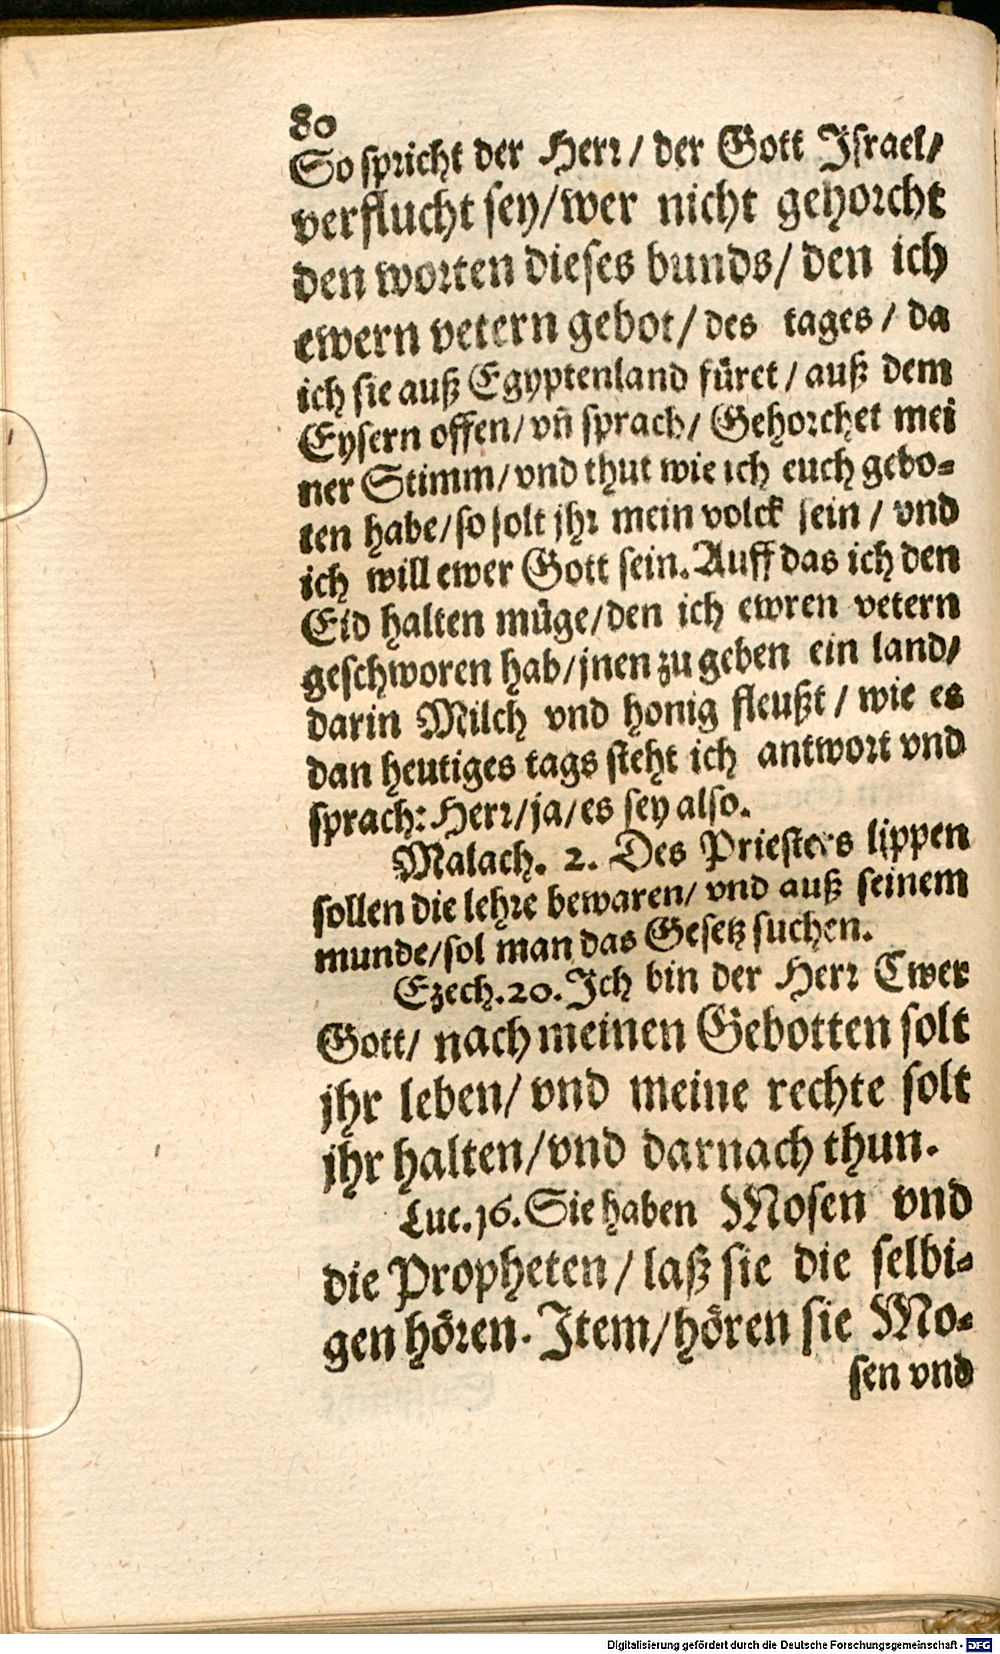 80
So spricht der Herr / der Gott Israel/
verflucht sey/wer nicht gehorcht
den worten dieses bunds/ den ich
ewern vetern gebot/ des tages / da
ich sie auß Egyptenland füret / auß dem
Eysern offen/ vñ sprach/ Gehorchet mei
ner Stimm/ vnd thut wie ich euch gebo-
ten habe/ so solt jhr mein volck sein / vnd
ich will ewer Gott sein. Auff das ich den
Eid halten müge/den ich ewren vetern
geschworen hab/jnen zu geben ein land/
darin Milch vnd honig fleußt / wie es
dan heutiges tags steht ich antwort vnd
sprach: Herr/ja/es sey also.
Malach. 2. Des Priesters lippen
sollen die lehre bewaren/ vnd auß seinem
munde/sol man das Gesetz suchen.
Ezech.20. Ich bin der Herr Ewer
Gott/ nach meinen Gebotten solt
jhr leben/ vnd meine rechte solt
jhr halten/vnd darnach thun.
Luc.16. Sie haben Mosen vnd
die Propheten / laß sie die selbi-
gen hören. Item/hören sie Mo-
sen vnd
Digitalisierung gefördert durch die Deutsche Forschungsgemeinschaft - DFG